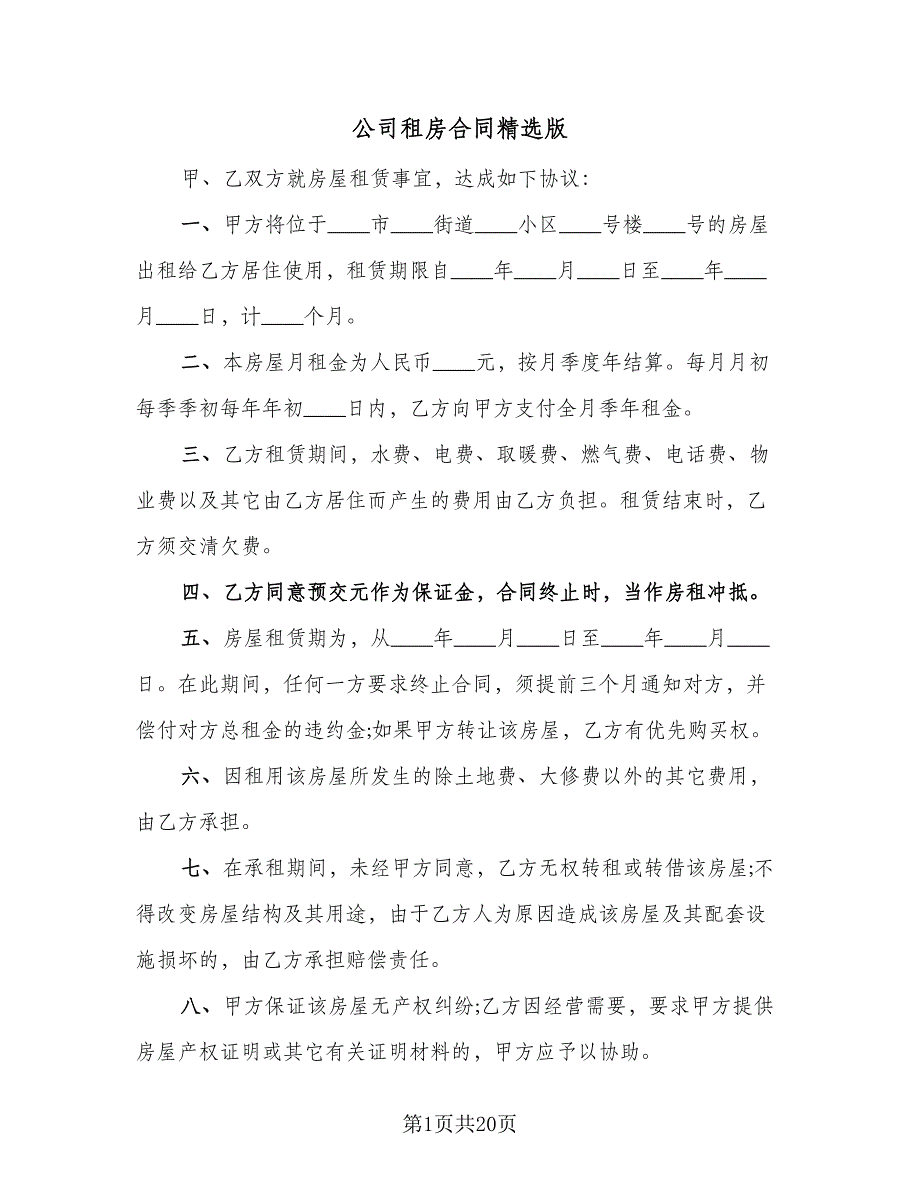 公司租房合同精选版
甲、乙双方就房屋租赁事宜，达成如下协议：
一、甲方将位于____市____街道____小区____号楼____号的房屋
出租给乙方居住使用，租赁期限自____年____月____日至____年____
月____日，计____个月。
二、本房屋月租金为人民币____元，按月季度年结算。每月月初
每季季初每年年初____日内，乙方向甲方支付全月季年租金。
三、乙方租赁期间，水费、电费、取暖费、燃气费、电话费、物
业费以及其它由乙方居住而产生的费用由乙方负担。租赁结束时，乙
方须交清欠费。
四、乙方同意预交元作为保证金，合同终止时，当作房租冲抵。
五、房屋租赁期为，从____年____月____日至____年____月____
日。在此期间，任何一方要求终止合同，须提前三个月通知对方，并
偿付对方总租金的违约金;如果甲方转让该房屋，乙方有优先购买权。
六、因租用该房屋所发生的除土地费、大修费以外的其它费用，
由乙方承担。
七、在承租期间，未经甲方同意，乙方无权转租或转借该房屋;不
得改变房屋结构及其用途，由于乙方人为原因造成该房屋及其配套设
施损坏的，由乙方承担赔偿责任。
八、甲方保证该房屋无产权纠纷;乙方因经营需要，要求甲方提供
房屋产权证明或其它有关证明材料的，甲方应予以协助。
第1页共20页